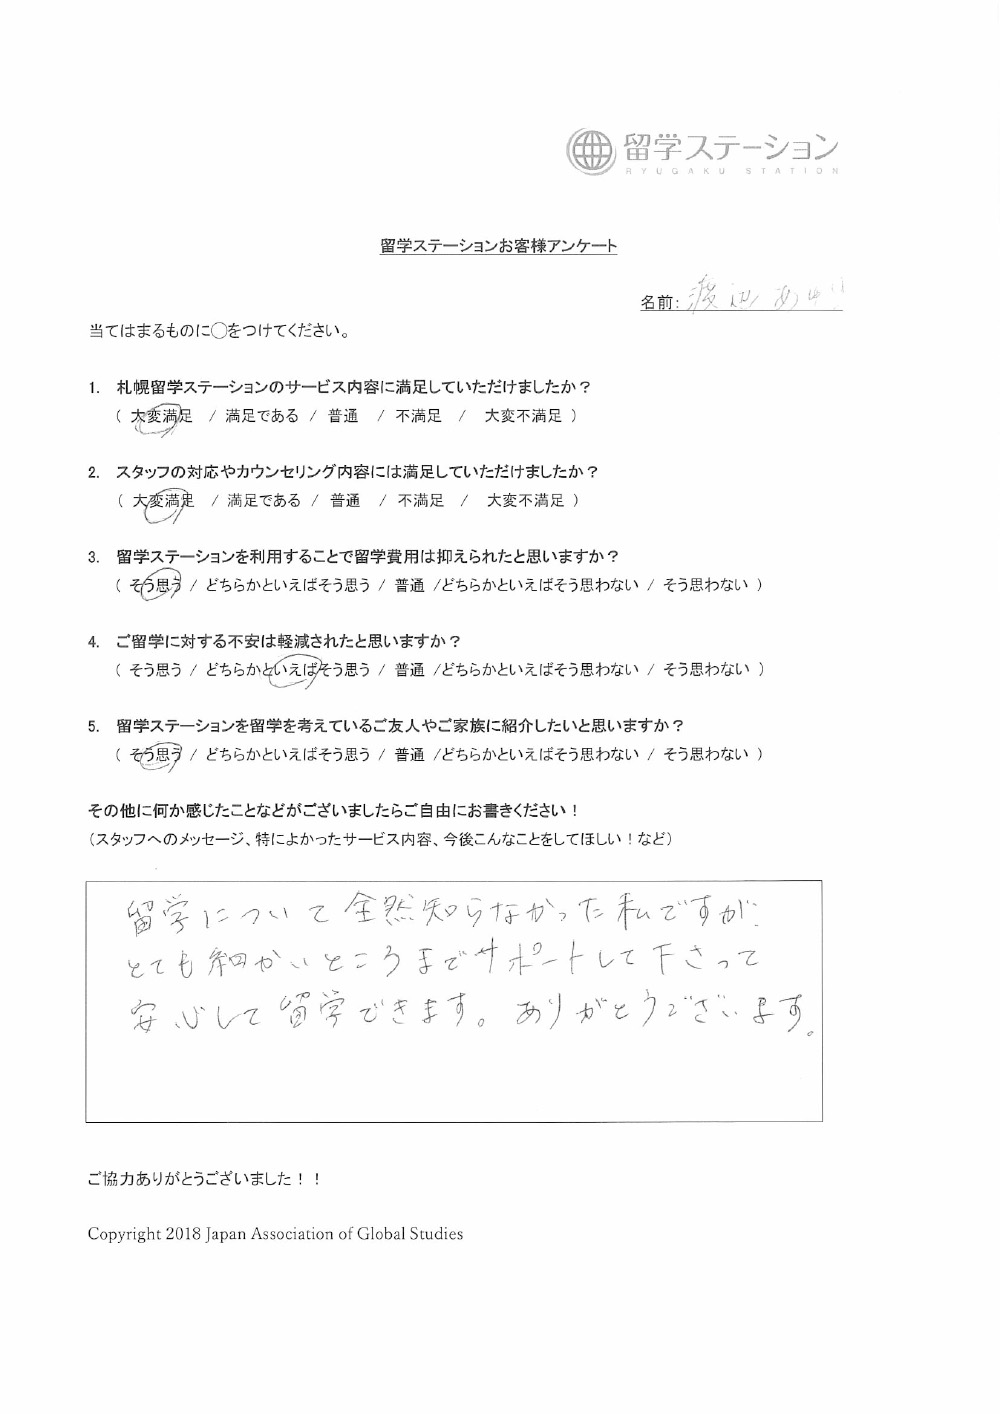 留学ステーション
RYUGAKU STATION
留学ステーションお客様アンケート
名前: 渡辺 あゆ
当てはまるものに○をつけてください。
1. 札幌留学ステーションのサービス内容に満足していただけましたか？
( 大変満足 / 満足である / 普通 / 不満足 / 大変不満足 )
2. スタッフの対応やカウンセリング内容には満足していただけましたか？
( 大変満足 / 満足である / 普通 / 不満足 / 大変不満足 )
3. 留学ステーションを利用することで留学費用は抑えられたと思いますか？
( そう思う / どちらかといえばそう思う / 普通 /どちらかといえばそう思わない / そう思わない )
4. ご留学に対する不安は軽減されたと思いますか？
( そう思う / どちらかといえばそう思う / 普通 /どちらかといえばそう思わない / そう思わない )
5. 留学ステーションを留学を考えているご友人やご家族に紹介したいと思いますか？
( そう思う / どちらかといえばそう思う / 普通 /どちらかといえばそう思わない / そう思わない )
その他に何か感じたことなどがございましたらご自由にお書きください！
（スタッフへのメッセージ、特によかったサービス内容、今後こんなことをしてほしい！など）
留学について全然知らなかった私ですが、
とても細かいところまでサポートして下さって
安心して留学できます。ありがとうございます。
ご協力ありがとうございました！！
Copyright 2018 Japan Association of Global Studies